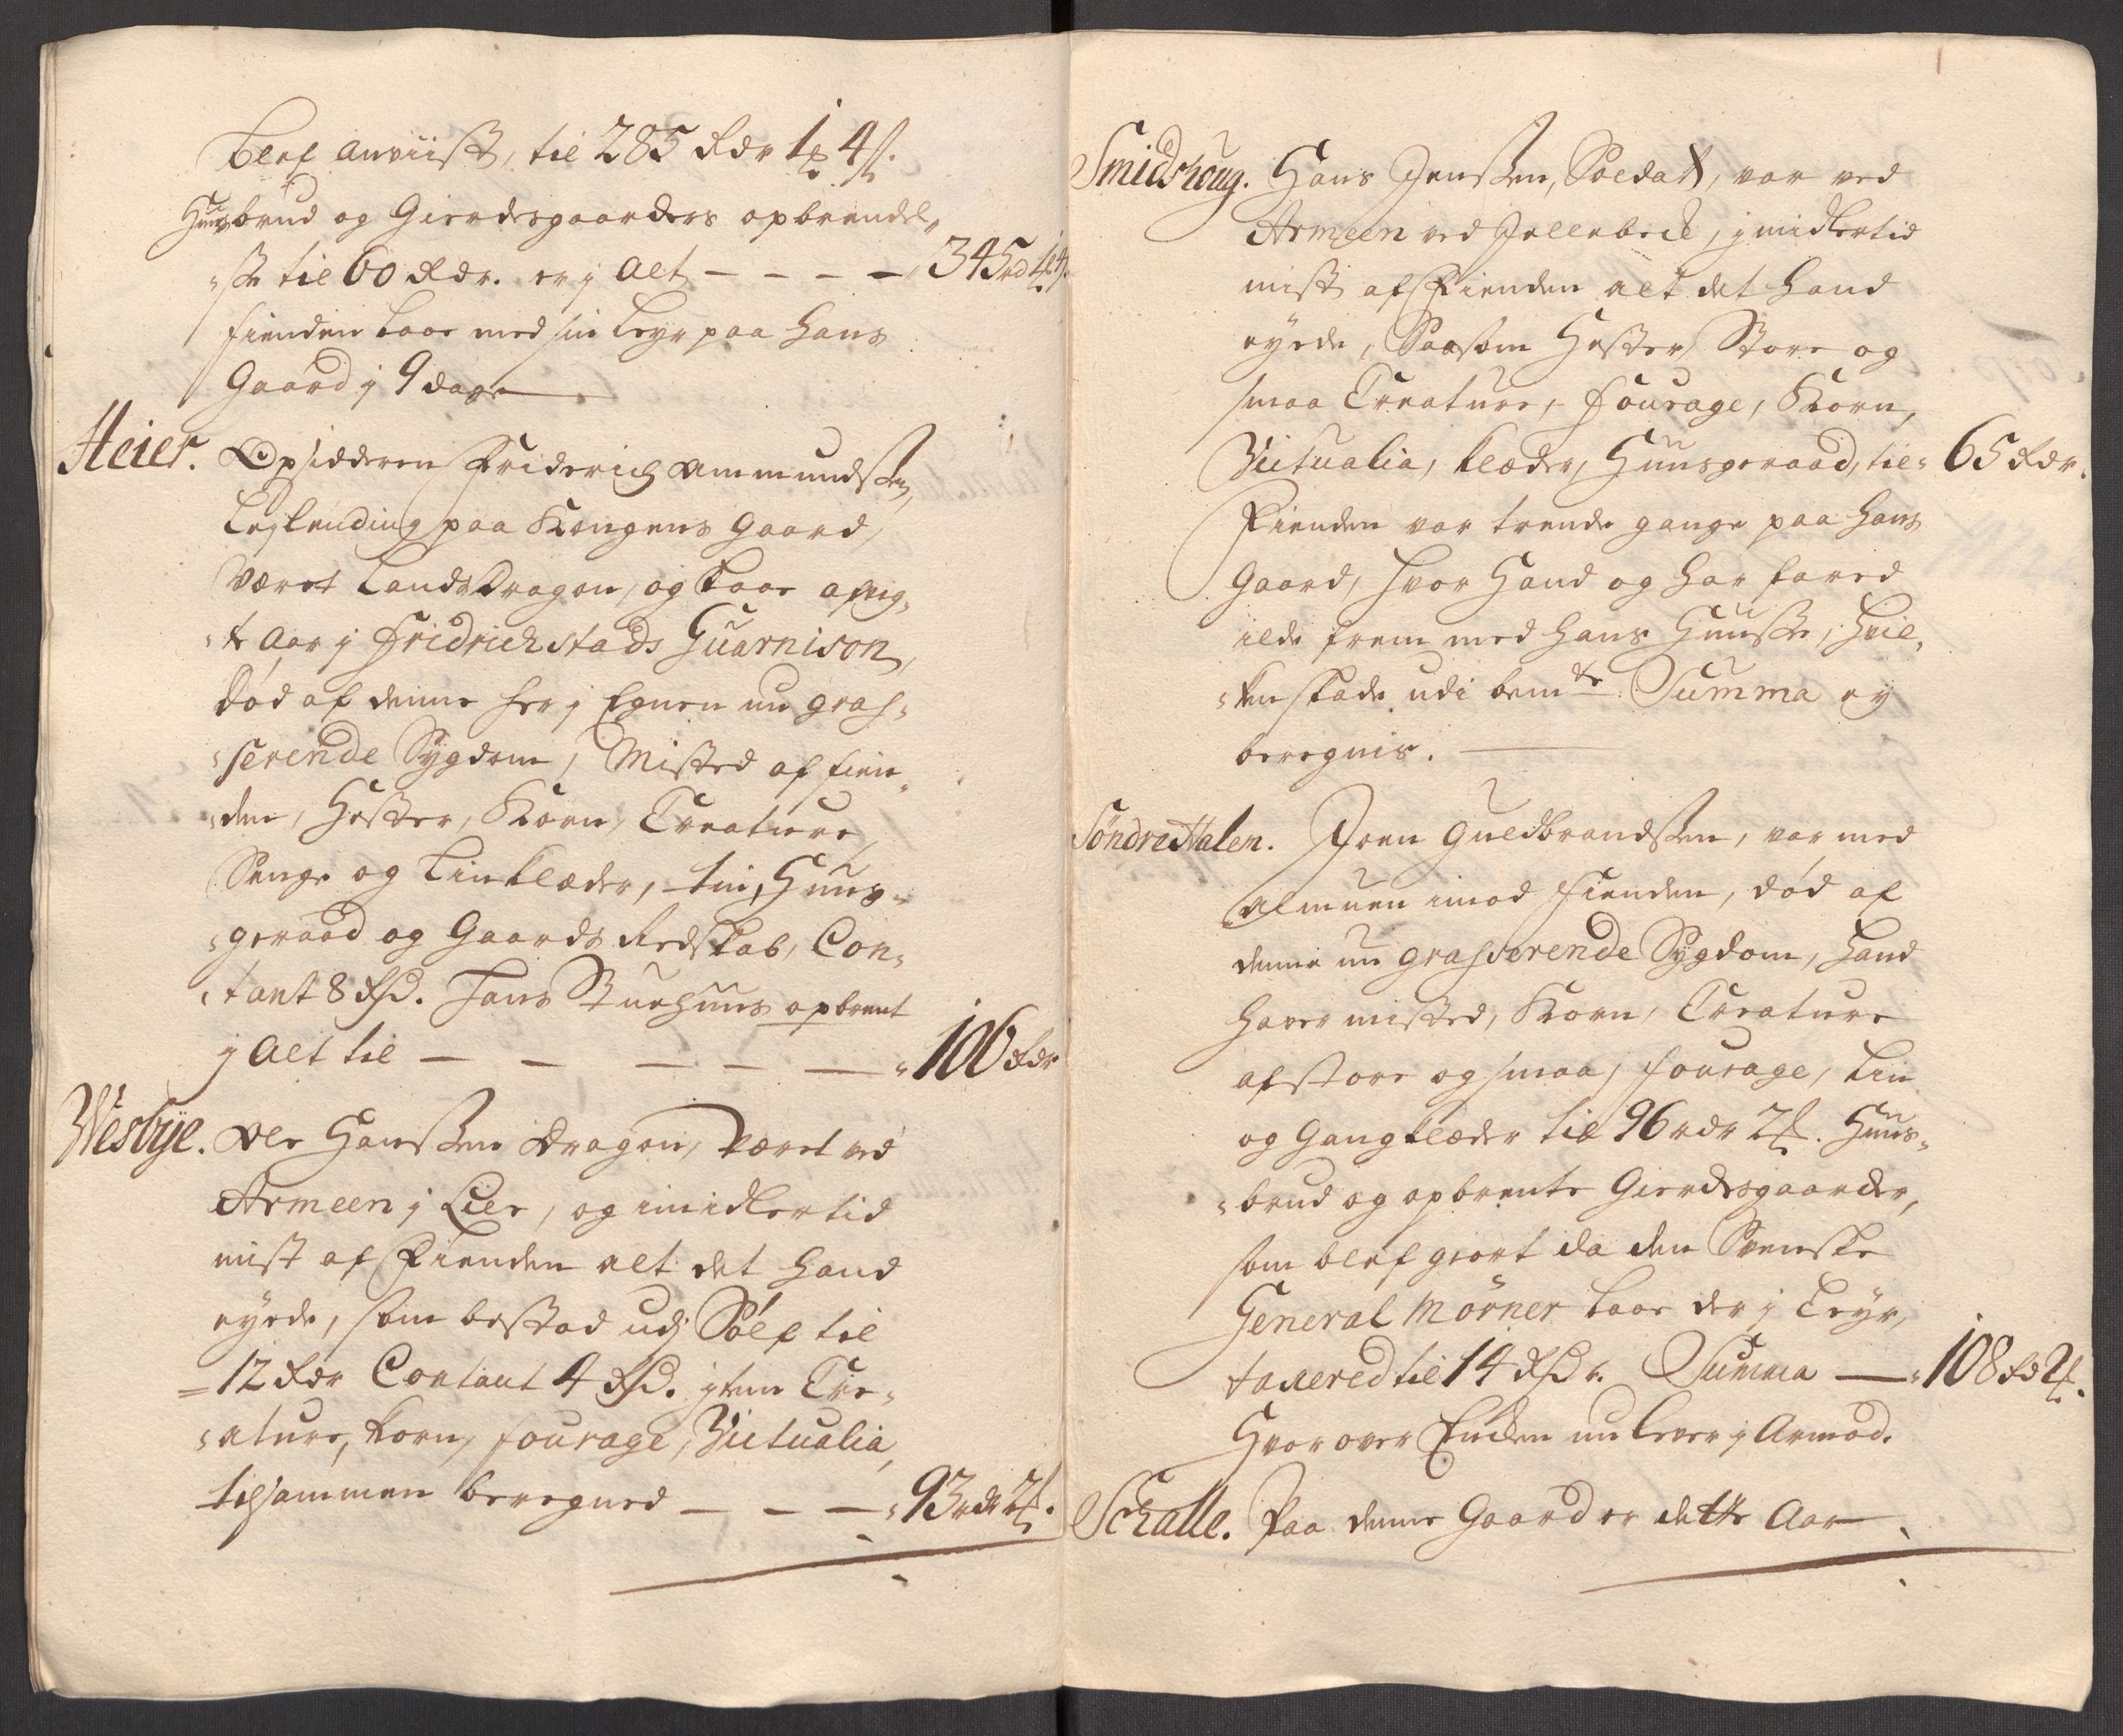 blef anviist, til 285 Rdr 1 ort 4 s.
Huusbrud og Gierdesgaarders opbrendel„
„se til 60 Rdr. er j Alt — — — — „345 rd 1 ort 4 s.
fienden laae med sin leyr paa hans
Gaard j 9 dage
Heier. Opsidderen Friderich Ammundssen,
Leylending paa Kongens Gaard,
været LandsDragon, og laae
„te Aar j Fridrichstads Guarnison,
død af denne her j Egnen nu gras„
„serende Sygdom, Misted af fien„
„den, Hester, Korn, Creature,
Senge og Linklæder, tin, Huus„
„geraad og Gaards Redskab, Con„
„tant 8 Rd. Hans Stuehuus opbrent
j Alt til — — — — — „106 Rdr
Wesbÿe. Ole Hanssen Dragon, været ved
Armeen j Lier, og imidlertid
mist af Fienden alt det hand
eyede, som bestod udj Sølf til
12 Rdr Contant 4 Rd. jtem Cre„
„ature, korn, fourage, Victualia,
tilsammen beregned — — — „93 rdr 2 ort.
Smidshoug. Hans Jenssen, Soldat, var ved
Armeen ved Jellebeck, jmidlertid
mist af Fienden alt det hand
eyede, Saasom Hester, Store og
smaa Creature, fourage, Korn,
Victualia, klæder, Huusgeraad, til „65 Rdr.
Fienden var trende gange paa hans
Gaard, hvor Hand og har fared
ilde frem med hans Huuse, hvil„
„ken skade udi bemte Summa ey
beregnis. —
Søndre Halen. Joen Guldbrandssen, var med
Almuen imod Fienden, død af
denne nu grasserende Sygdom, hand
haver misted, Korn, Creature
af store og smaa, fourage, Lin
og Gangklæder til 96 rdr 2 ort. Huus„
„brud og opbrente Gierdesgaarder,
som blef giort da den Svenske
General Mörner laae der j Leyr,
taxered til 14 Rdr. Summa — „108 rd 2 ort.
Hvorover Encken nu lever j Armod.
Schalle. Paa denne Gaard er dette Aar